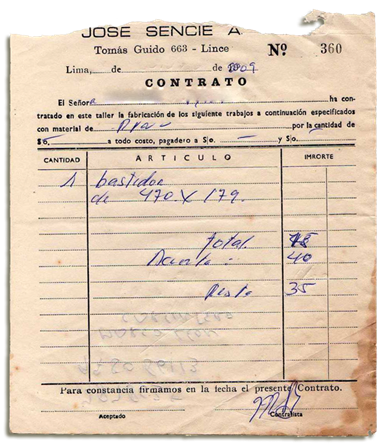 JOSE SENCIE A
Tomás Guido 663 - Lince Nº 360
Lima, de de 2009
CONTRATO
El Señor ha con-
tratado en este taller la fabricación de los siguientes trabajos a continuación especificados
con material de por la cantidad de
a todo costo, pagadero a S/o. y S/o.
CANTIDAD ARTICULO IMRORTE
1 bastidor
de 470 X 179.
total
40
35
Para constancia firmamos en la fecha el presente Contrato.
Aceptado Contratista